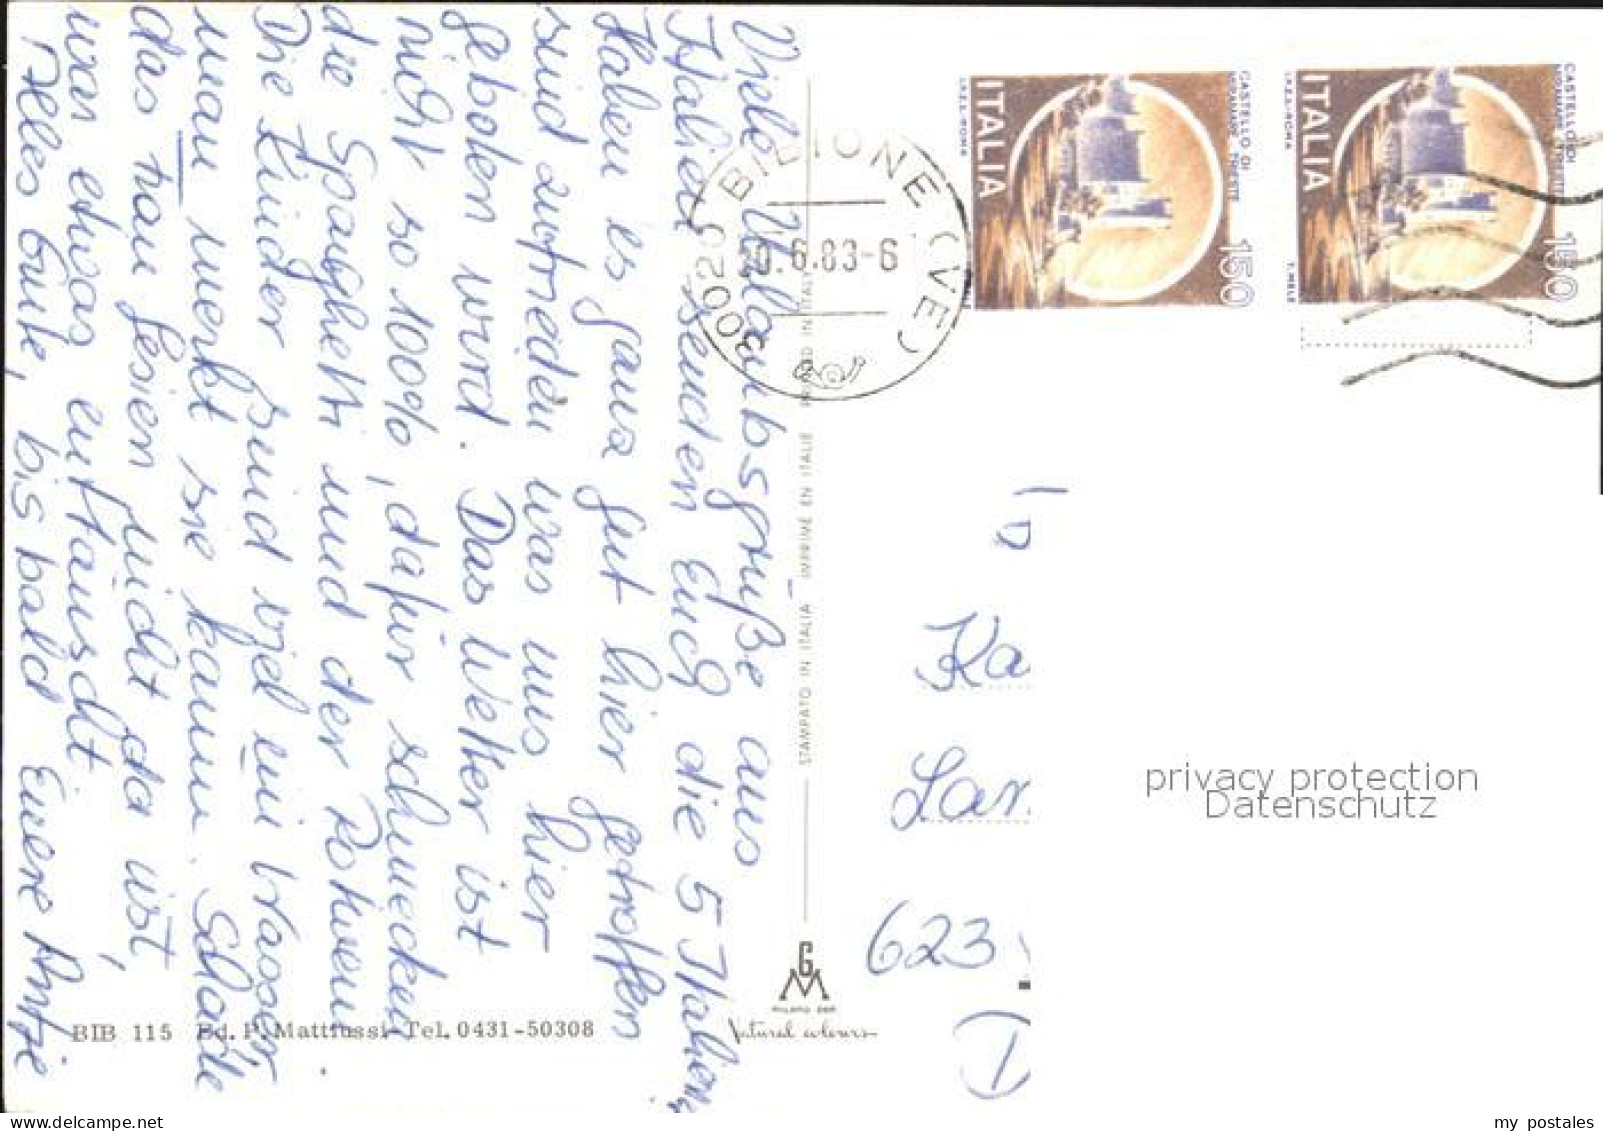 Viele Urlaubsgrüße aus
Italien senden Euch die 5 Italiener
Haben es ganz gut hier getroffen
sind zufrieden was uns hier
geboten wird. Das Wetter ist
nicht so 100%, dafür schmecken
die Spaughetti und der Rotwein.
Die Kinder sind viel im Wasser,
man merkt sie kaum. Schade
das man Gesien nicht da ist,
war etwas enttäuscht.
Alles Gute, bis bald Eurere Antje
BIB 115 Ed. P. Mattiussi-Tel. 0431-50308
STAMPATO IN ITALIA IMPRIMÉ EN ITALIE PRINTED IN ITALY
GM
MILANO
Natural colours
BIBIONE (VE)
.6.83-6
30020
ITALIA
CASTELLO DI
MIRAMARE TRIESTE
150
I.P.Z.S.-ROMA
ITALIA
CASTELLO DI
MIRAMARE TRIESTE
150
I.P.Z.S.-ROMA
T. MELE
Ka
Lar
623
D
privacy protection
Datenschutz
my postales